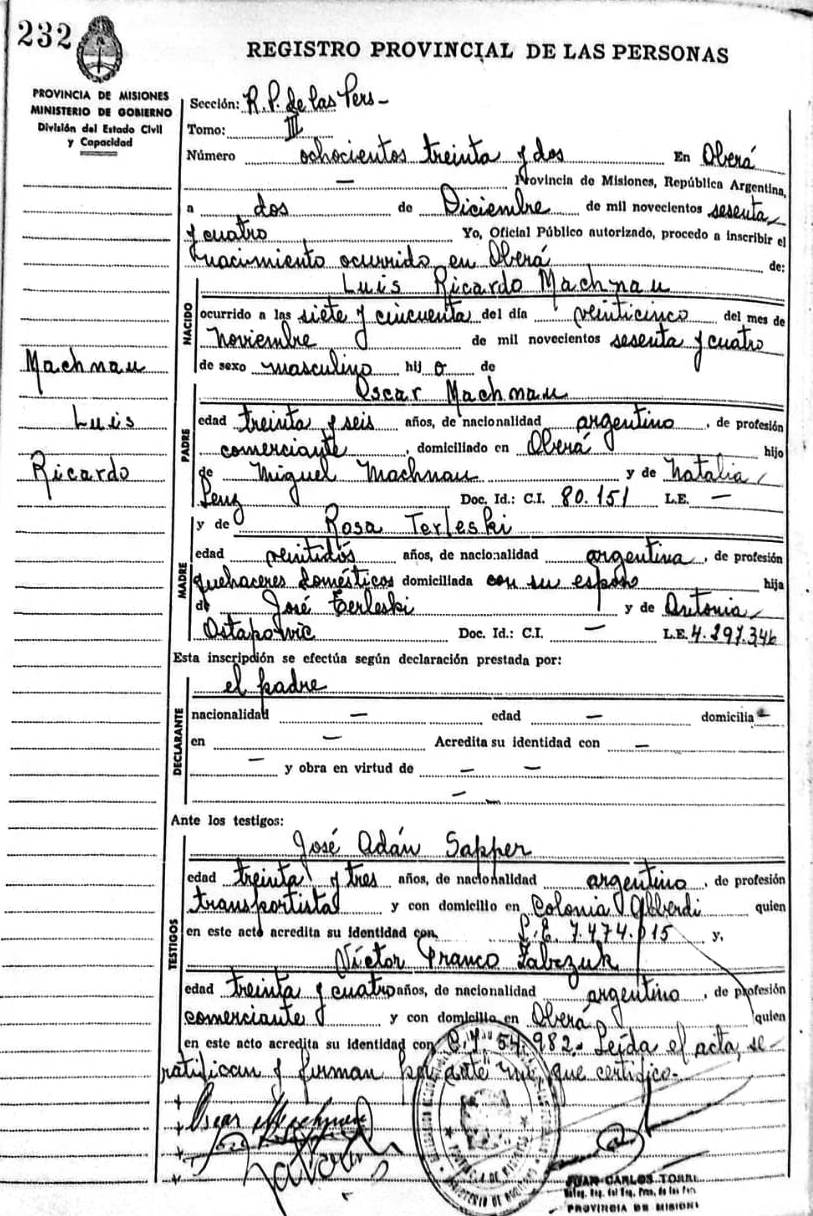 232
REGISTRO PROVINCIAL DE LAS PERSONAS
PROVINCIA DE MISIONES
MINISTERIO DE GOBIERNO
División del Estado Civil
y Capacidad
Sección: R.P. de las Pers-
Tomo: III
Número ochocientos treinta y dos En Oberá
— Provincia de Misiones, República Argentina,
a dos de Diciembre de mil novecientos sesenta
y cuatro Yo, Oficial Público autorizado, procedo a inscribir el
nacimiento ocurrido en Oberá de:
Luis Ricardo Machnau
NACIDO
ocurrido a las siete y cincuenta del día veinticinco del mes de
noviembre de mil novecientos sesenta y cuatro
de sexo masculino hij o de
Machnau
Luis
Ricardo
Oscar Machnau
PADRE
edad treinta y seis años, de nacionalidad argentino, de profesión
comerciante, domiciliado en Oberá hijo
de Miguel Machnau y de Natalia
Lenz Doc. Id.: C.I. 80.151 L.E. —
y de Rosa Terleski
MADRE
edad veintidós años, de nacionalidad argentina, de profesión
quehaceres domésticos domiciliada con su esposo hija
de José Terleski y de Antonia
Ostapovic Doc. Id.: C.I. — L.E. 4.297.346
Esta inscripción se efectúa según declaración prestada por:
el padre
DECLARANTE
nacionalidad — edad — domicilia —
en — Acredita su identidad con —
— y obra en virtud de — —
—
Ante los testigos:
José Adán Sapper
TESTIGOS
edad treinta y tres años, de nacionalidad argentino, de profesión
transportista y con domicilio en Colonia Alberdi quien
en este acto acredita su identidad con L.E. 7.474.815 y,
Víctor Franco Zabczuk
edad treinta y cuatro años, de nacionalidad argentino, de profesión
comerciante y con domicilio en Oberá quien
en este acto acredita su identidad con 54.982- Leída el acta, se
ratifican y firman por ante mí que certifico-
Oscar Machnau
JUAN CARLOS TORRE
PROVINCIA DE MISIONES